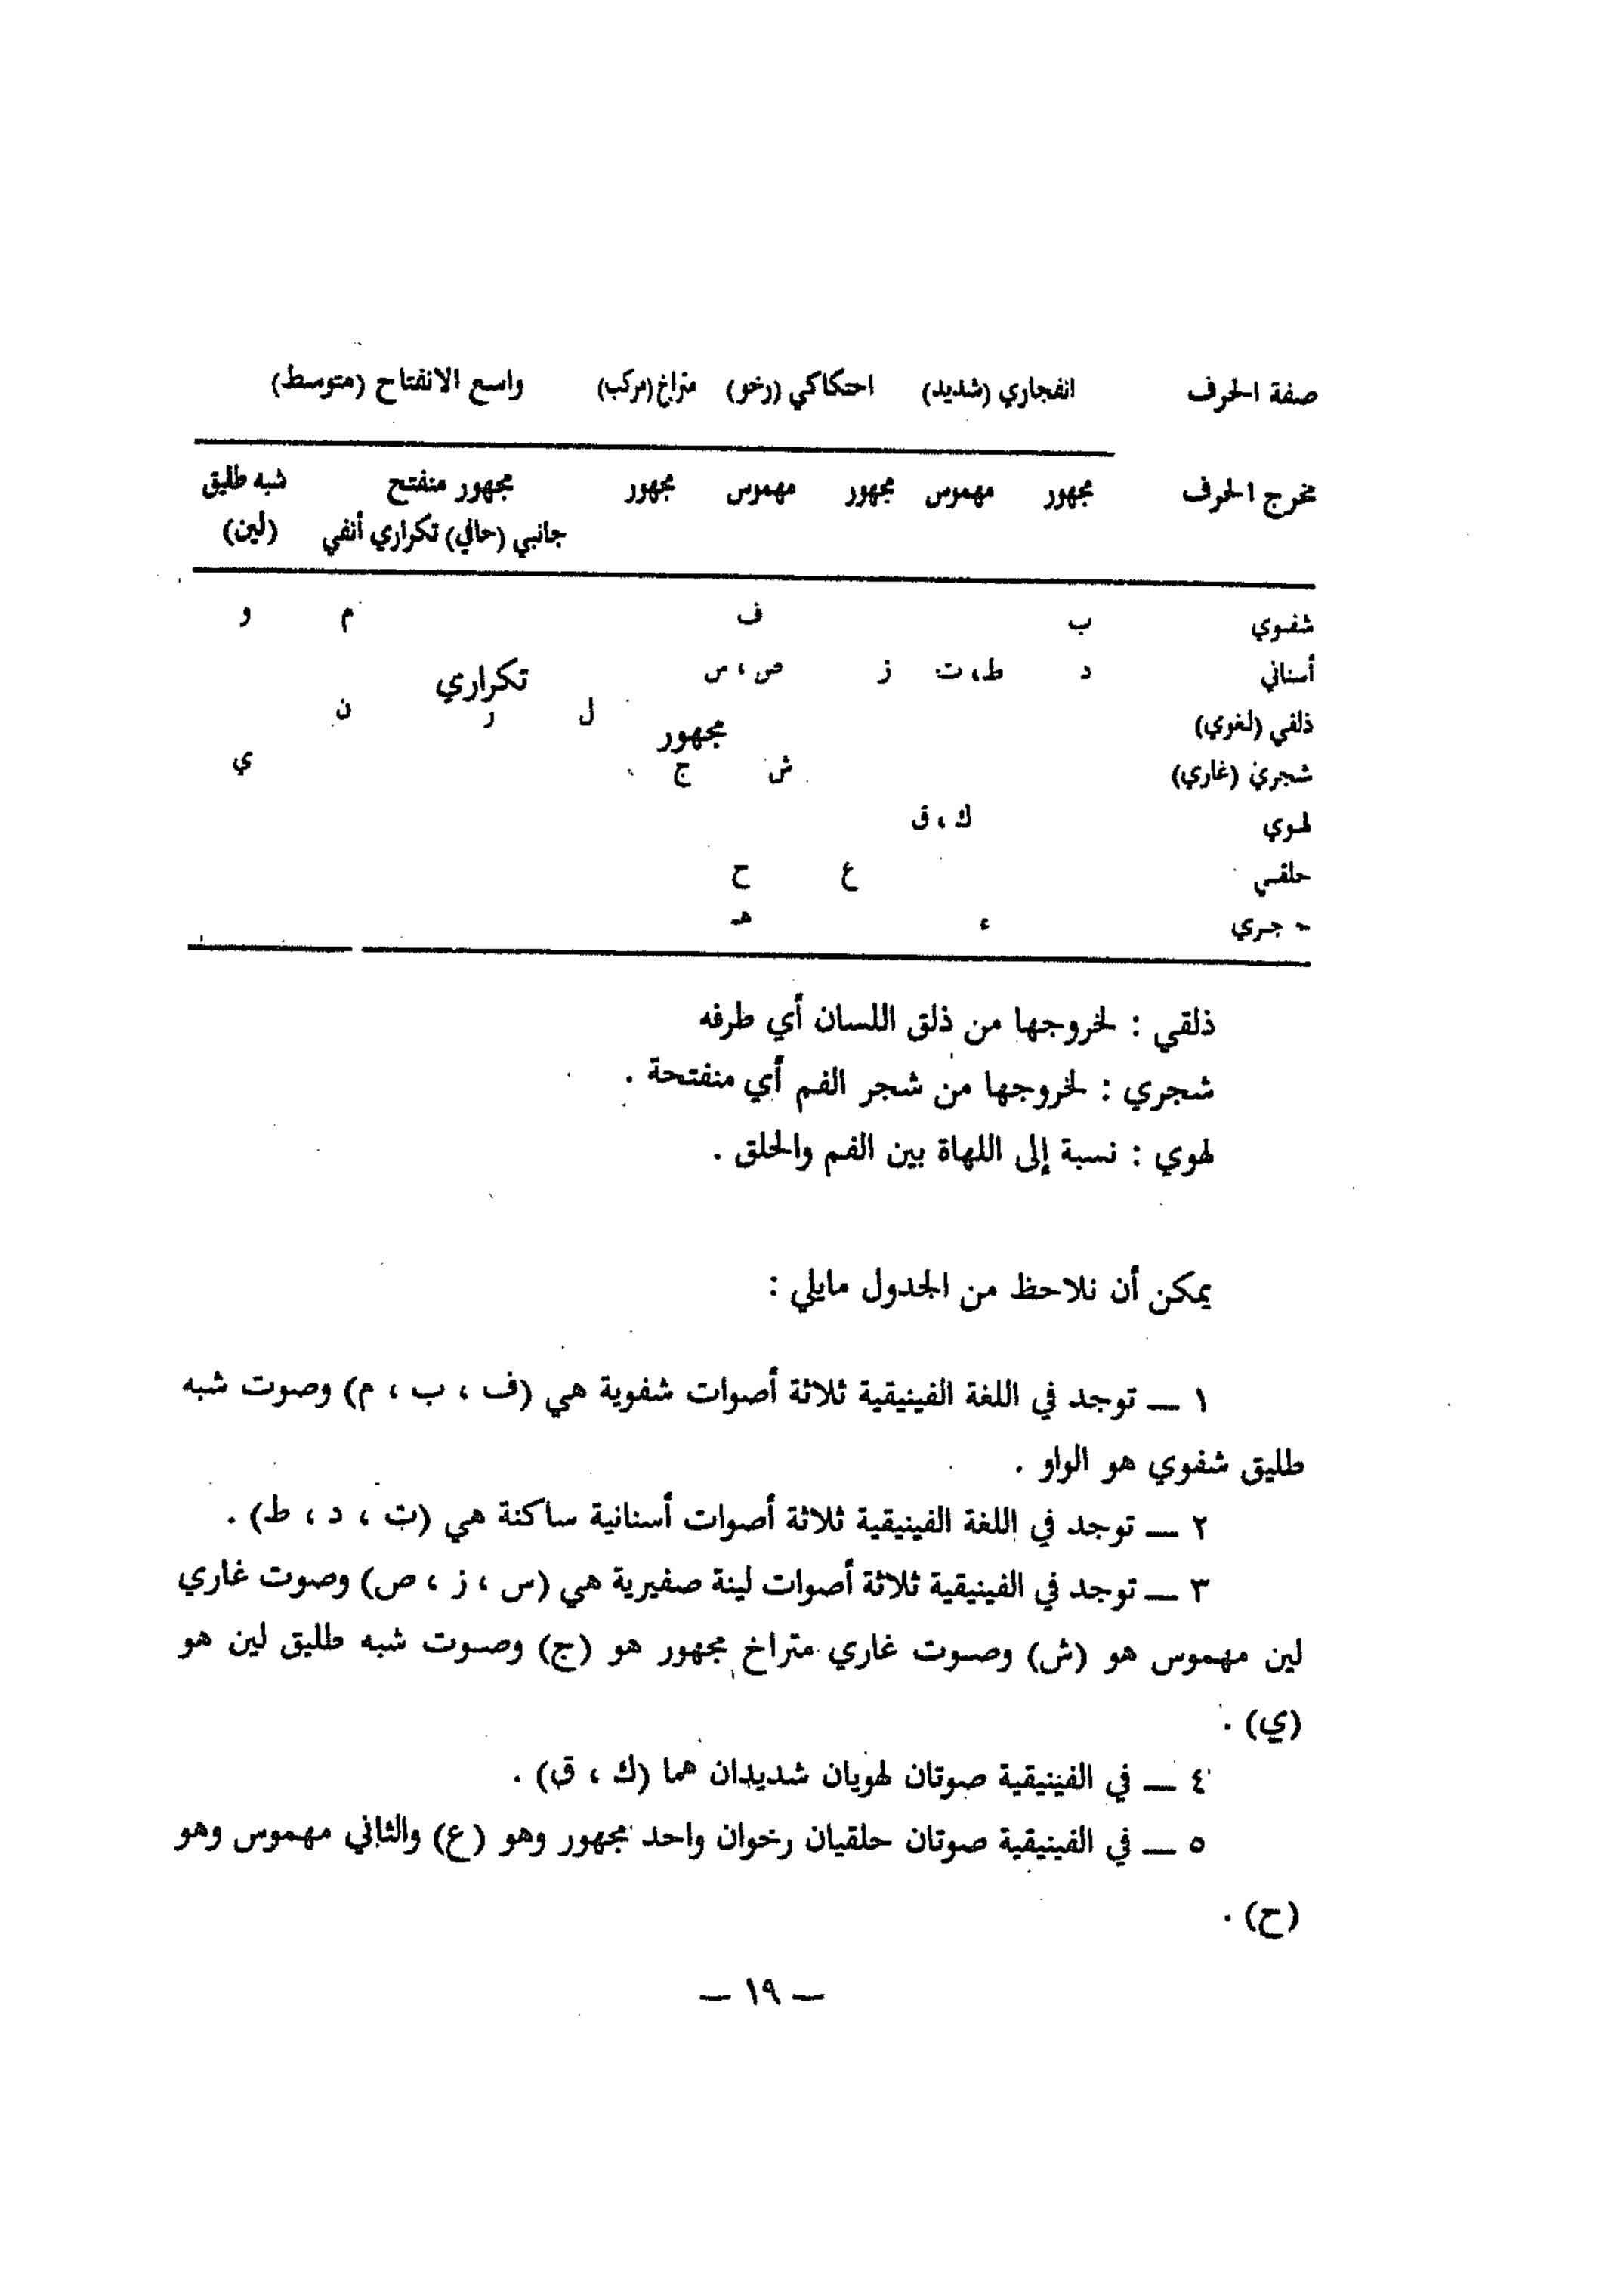 صفة الحرف انفجاري (شديد) احتكاكي (رخو) متراخ (مركب) واسع الانفتاح (متوسط)
مخرج الحرف مجهور مهموس مجهور مهموس مجهور مجهور منفتح شبه طليق
جانبي (حافي) تكراري أنفي (لين)
شفوي ب ف م و
أسناني د ط، ت ز ص، س تكراري
ذلقي (لغوي) ل ر ن
مجهور
شجري (غاري) ش ج ي
لهوي ك، ق
حلقي ع ح
جري ء هـ
ذلقي : لخروجها من ذلق اللسان أي طرفه
شجري : لخروجها من شجر الفم أي منفتحة .
لهوي : نسبة إلى اللهاة بين الفم والحلق .
يمكن أن نلاحظ من الجدول مايلي :
١ — توجد في اللغة الفينيقية ثلاثة أصوات شفوية هي (ف ، ب ، م) وصوت شبه
طليق شفوي هو الواو .
٢ — توجد في اللغة الفينيقية ثلاثة أصوات أسنانية ساكنة هي (ت ، د ، ط) .
٣ — توجد في الفينيقية ثلاثة أصوات لينة صفيرية هي (س ، ز ، ص) وصوت غاري
لين مهموس هو (ش) وصوت غاري متراخ مجهور هو (ج) وصوت شبه طليق لين هو
(ي) .
٤ — في الفينيقية صوتان لهويان شديدان هما (ك ، ق) .
٥ — في الفينيقية صوتان حلقيان رخوان واحد مجهور وهو (ع) والثاني مهموس وهو
(ح) .
— ١٩ —